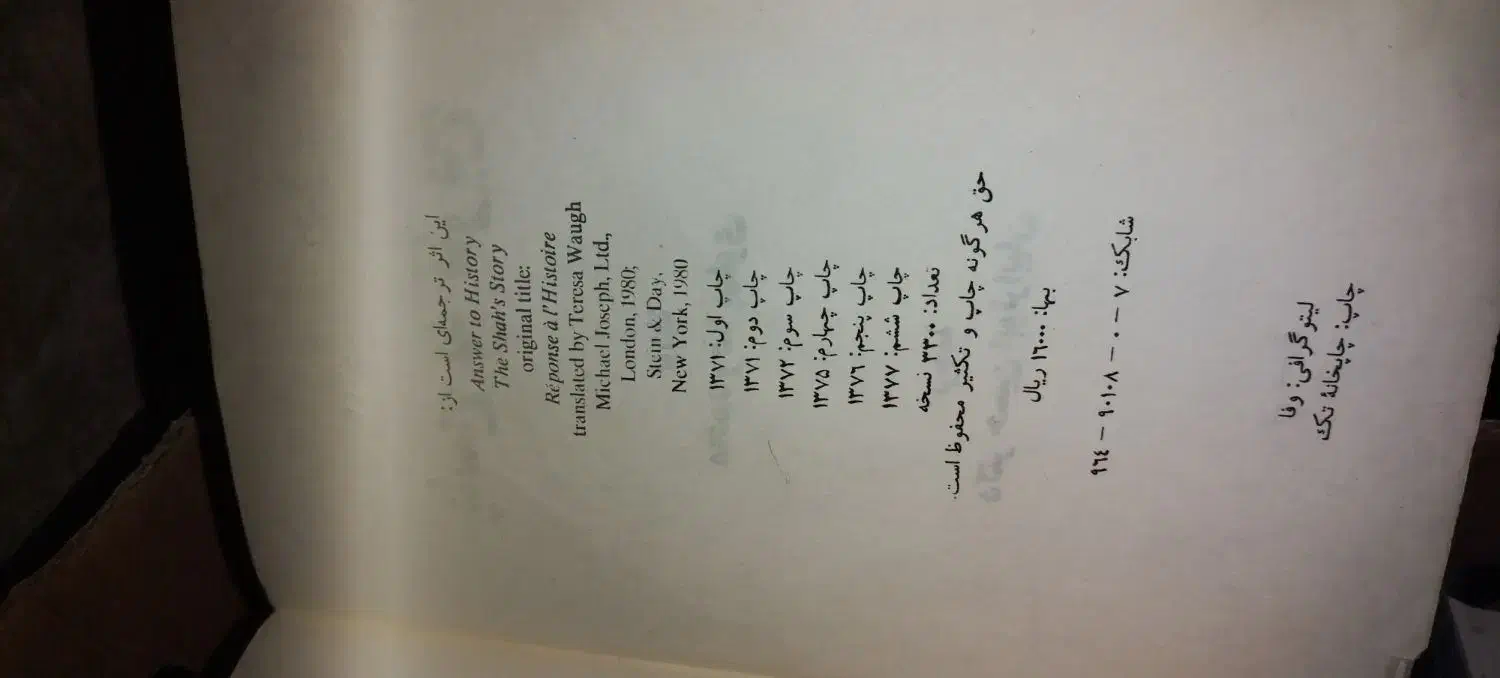 این اثر ترجمه‌ای است از:
Answer to History
The Shah's Story
original title:
Réponse à l'Histoire
translated by Teresa Waugh
Michael Joseph, Ltd.,
London, 1980;
Stein & Day,
New York, 1980
چاپ اول: ۱۳۷۱
چاپ دوم: ۱۳۷۱
چاپ سوم: ۱۳۷۲
چاپ چهارم: ۱۳۷۵
چاپ پنجم: ۱۳۷۶
چاپ ششم: ۱۳۷۷
تعداد: ۳۳۰۰ نسخه
حق هرگونه چاپ و تکثیر محفوظ است.
بها: ۱۶۰۰۰ ریال
شابک: ۷ – ۰ – ۹۰۱۰۸ – ۹۶۴
لیتوگرافی: وفا
چاپ: چاپخانهٔ تک